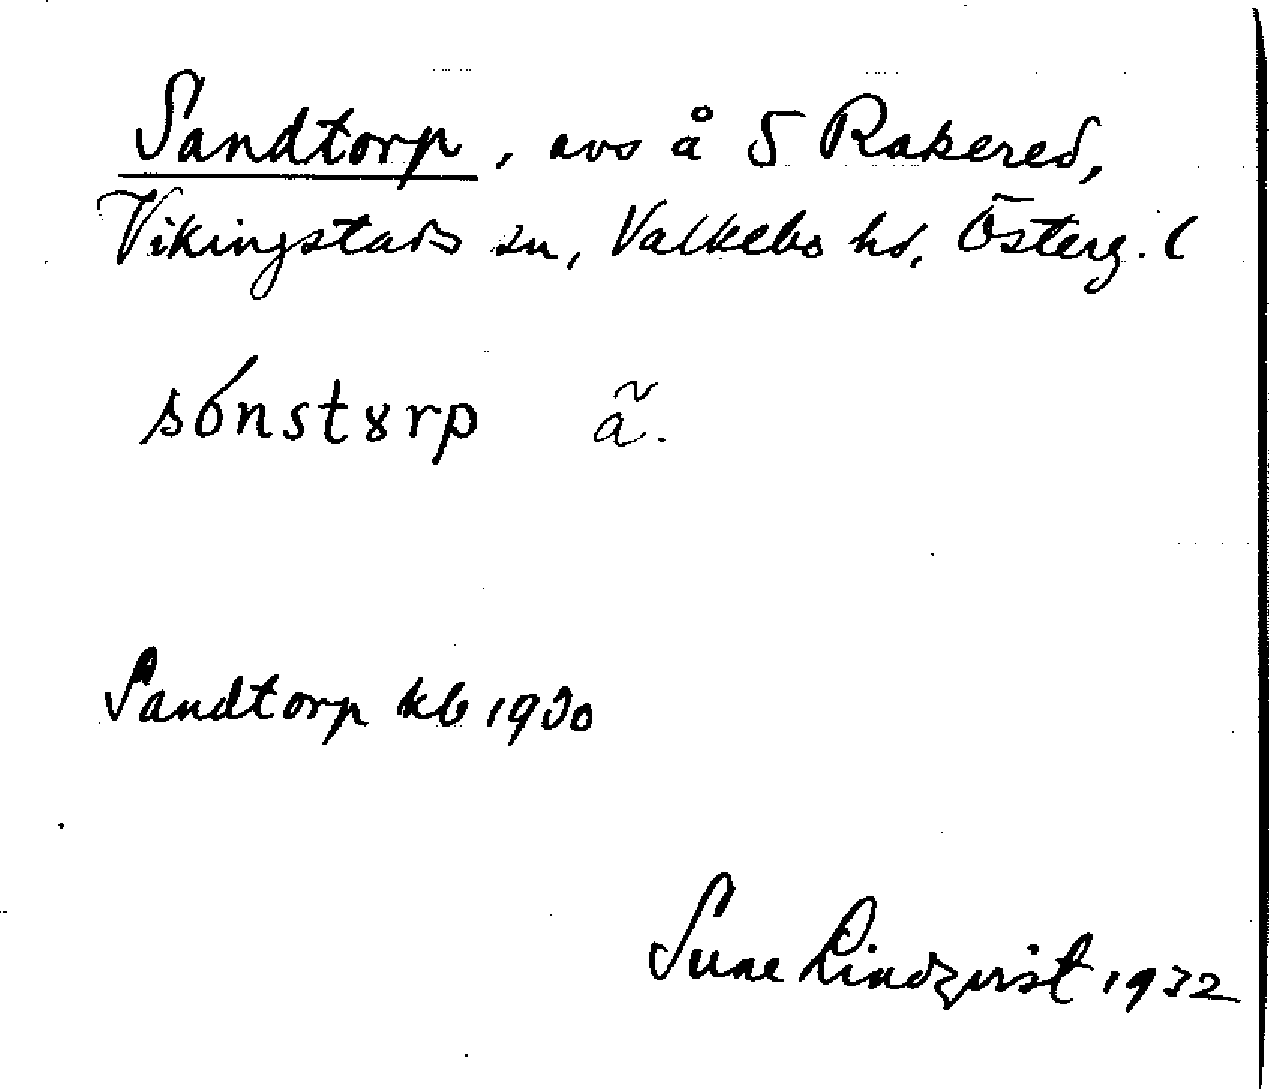 Sandtorp, avs å S Rakered,
Vikingstads sn, Valkebo hd, Österg. l
sónstɤrp ã.
Sandtorp kb 1930
Sune Lindqvist 1932